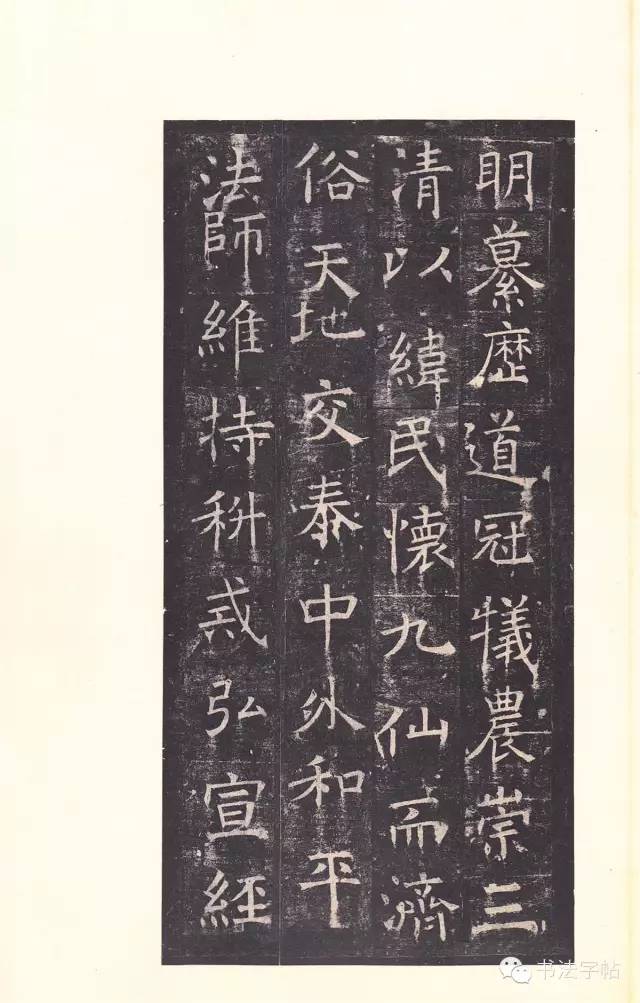 明纂歷道冠犧農崇三
清以緯民懷九仙而濟
俗天地交泰中外和平
法師維持科戒弘宣經
书法字帖